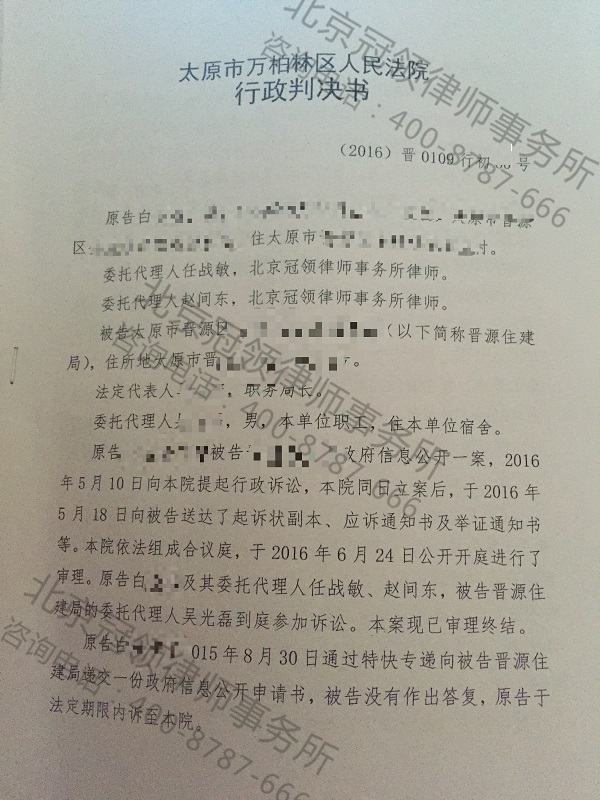 太原市万柏林区人民法院
行政判决书
（2016）晋0109行初 号
原告白
区 住太原市 村。
委托代理人任战敏，北京冠领律师事务所律师。
委托代理人赵间东，北京冠领律师事务所律师。
被告太原市晋源区 （以下简称晋源住建
局），住所地太原市晋 。
法定代表人 ，职务局长。
委托代理人吴 ，男，本单位职工，住本单位宿舍。
原告 被告 政府信息公开一案，2016
年5月10日向本院提起行政诉讼，本院同日立案后，于2016年
5月18日向被告送达了起诉状副本、应诉通知书及举证通知书
等。本院依法组成合议庭，于2016年6月24日公开开庭进行了
审理。原告白 及其委托代理人任战敏、赵间东，被告晋源住
建局的委托代理人吴光磊到庭参加诉讼。本案现已审理终结。
原告白 015年8月30日通过特快专递向被告晋源住
建局递交一份政府信息公开申请书，被告没有作出答复，原告于
法定期限内诉至本院。
北京冠领律师事务所
咨询电话：400-8787-666
北京冠领律师事务所
咨询电话：400-8787-666
北京冠领律师事务所
咨询电话：400-8787-666